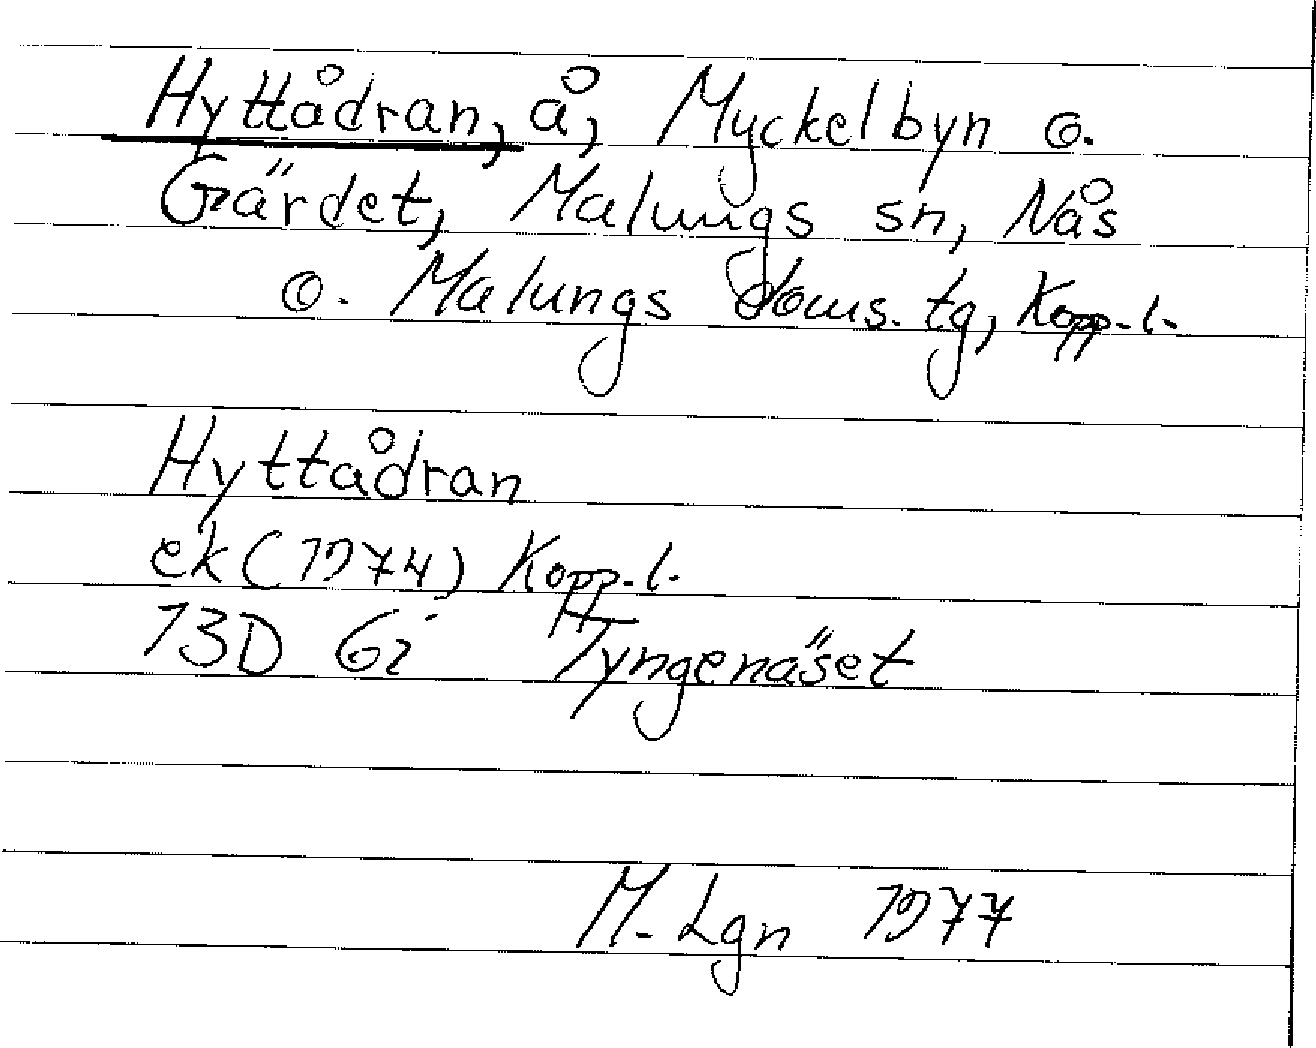 Hyttådran, å, Myckelbyn o.
Gärdet, Malungs sn, Nås
o. Malungs doms. tg, Kopp. l.
Hyttådran
ek (1974) Kopp. l.
13D 6i Tyngenäset
M. Lgn 1977